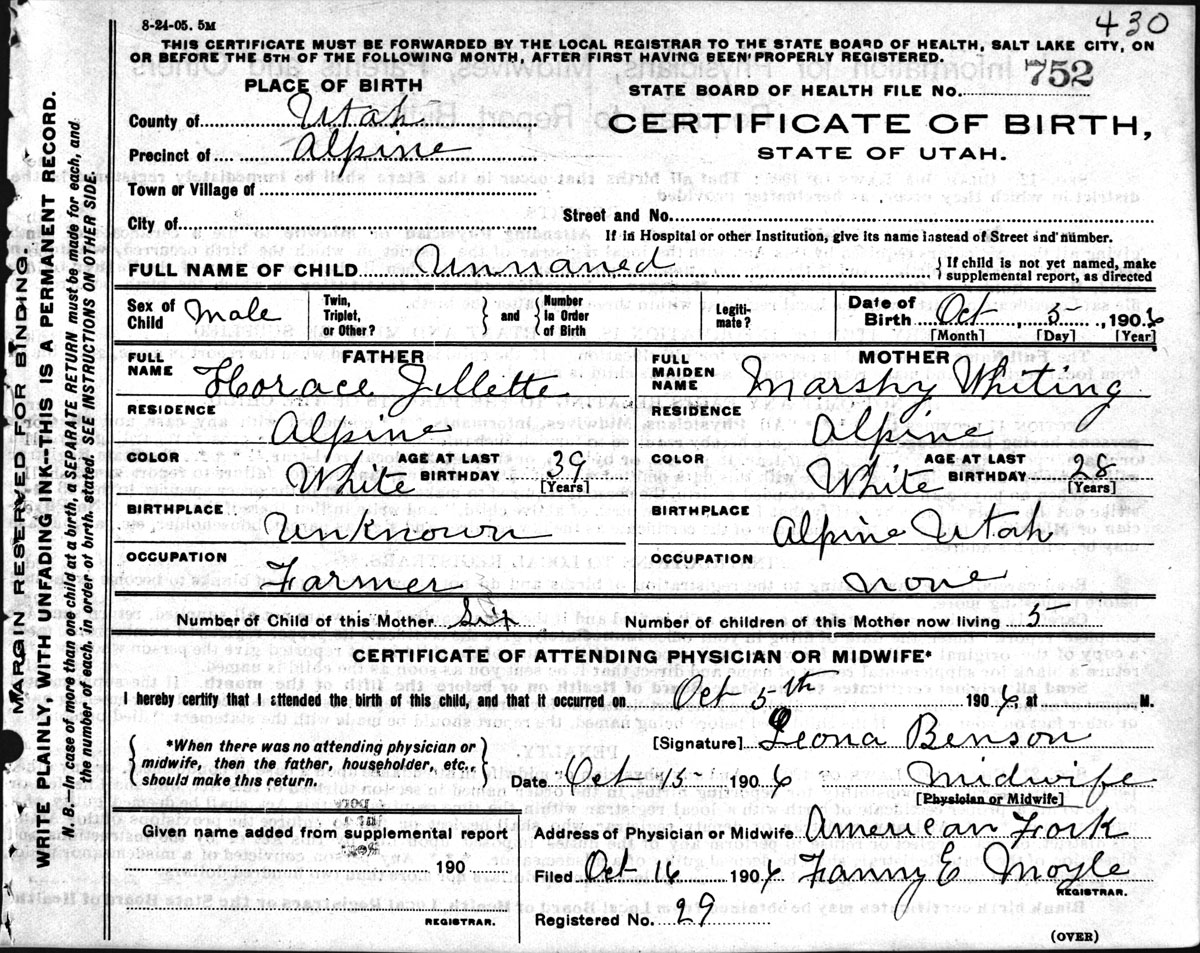 8-24-05. 5M
430
THIS CERTIFICATE MUST BE FORWARDED BY THE LOCAL REGISTRAR TO THE STATE BOARD OF HEALTH, SALT LAKE CITY, ON
OR BEFORE THE 5TH OF THE FOLLOWING MONTH, AFTER FIRST HAVING BEEN PROPERLY REGISTERED.
PLACE OF BIRTH
STATE BOARD OF HEALTH FILE No. 752
County of Utah
CERTIFICATE OF BIRTH,
Precinct of Alpine
STATE OF UTAH.
Town or Village of
City of
Street and No.
If in Hospital or other Institution, give its name instead of Street and number.
FULL NAME OF CHILD Unnamed { If child is not yet named, make supplemental report, as directed
Sex of Child Male
Twin, Triplet, or Other? } and { Number in Order of Birth
Legitimate?
Date of Birth Oct, 5, 1906
[Month] [Day] [Year]
FATHER
FULL NAME Horace Jillette
MOTHER
FULL MAIDEN NAME Marshy Whiting
RESIDENCE Alpine
RESIDENCE Alpine
COLOR White AGE AT LAST BIRTHDAY 39 [Years]
COLOR White AGE AT LAST BIRTHDAY 28 [Years]
BIRTHPLACE unknown
BIRTHPLACE Alpine Utah
OCCUPATION Farmer
OCCUPATION none
Number of Child of this Mother Six
Number of children of this Mother now living 5
CERTIFICATE OF ATTENDING PHYSICIAN OR MIDWIFE*
I hereby certify that I attended the birth of this child, and that it occurred on Oct 5th 1906 at M.
{ *When there was no attending physician or midwife, then the father, householder, etc., should make this return. }
[Signature] Leona Benson
Date Oct 15 1906 Midwife
[Physician or Midwife]
Given name added from supplemental report
190
REGISTRAR.
Address of Physician or Midwife American Fork
Filed Oct 16 1906 Fanny E Moyle
REGISTRAR.
Registered No. 29
(OVER)
MARGIN RESERVED FOR BINDING.
WRITE PLAINLY, WITH UNFADING INK---THIS IS A PERMANENT RECORD.
N. B.--In case of more than one child at a birth, a SEPARATE RETURN must be made for each, and
the number of each, in order of birth, stated. SEE INSTRUCTIONS ON OTHER SIDE.